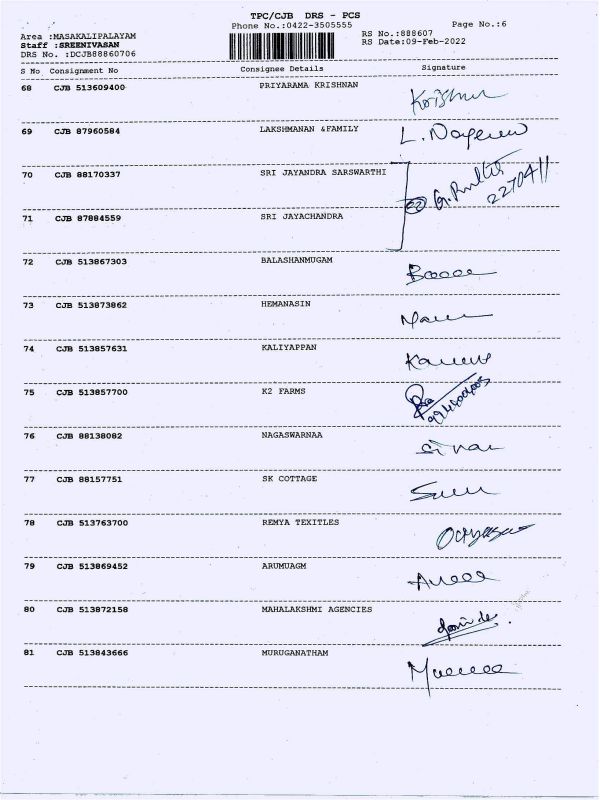 TPC/CJB DRS - PCS
Phone No.:0422-3505555
Page No.:6
Area :MASAKALIPALAYAM
Staff :SREENIVASAN
DRS No. :DCJB88860706
RS No.:888607
RS Date:09-Feb-2022
S No Consignment No Consignee Details Signature
68 CJB 513609400 PRIYARAMA KRISHNAN Krishnan
69 CJB 87960584 LAKSHMANAN &FAMILY
70 CJB 88170337 SRI JAYANDRA SARSWARTHI
71 CJB 87884559 SRI JAYACHANDRA
72 CJB 513867303 BALASHANMUGAM
73 CJB 513873862 HEMANASIN
74 CJB 513857631 KALIYAPPAN
75 CJB 513857700 K2 FARMS
76 CJB 88138082 NAGASWARNAA
77 CJB 88157751 SK COTTAGE
78 CJB 513763700 REMYA TEXITLES
79 CJB 513869452 ARUMUAGM
80 CJB 513872158 MAHALAKSHMI AGENCIES
81 CJB 513843666 MURUGANATHAM